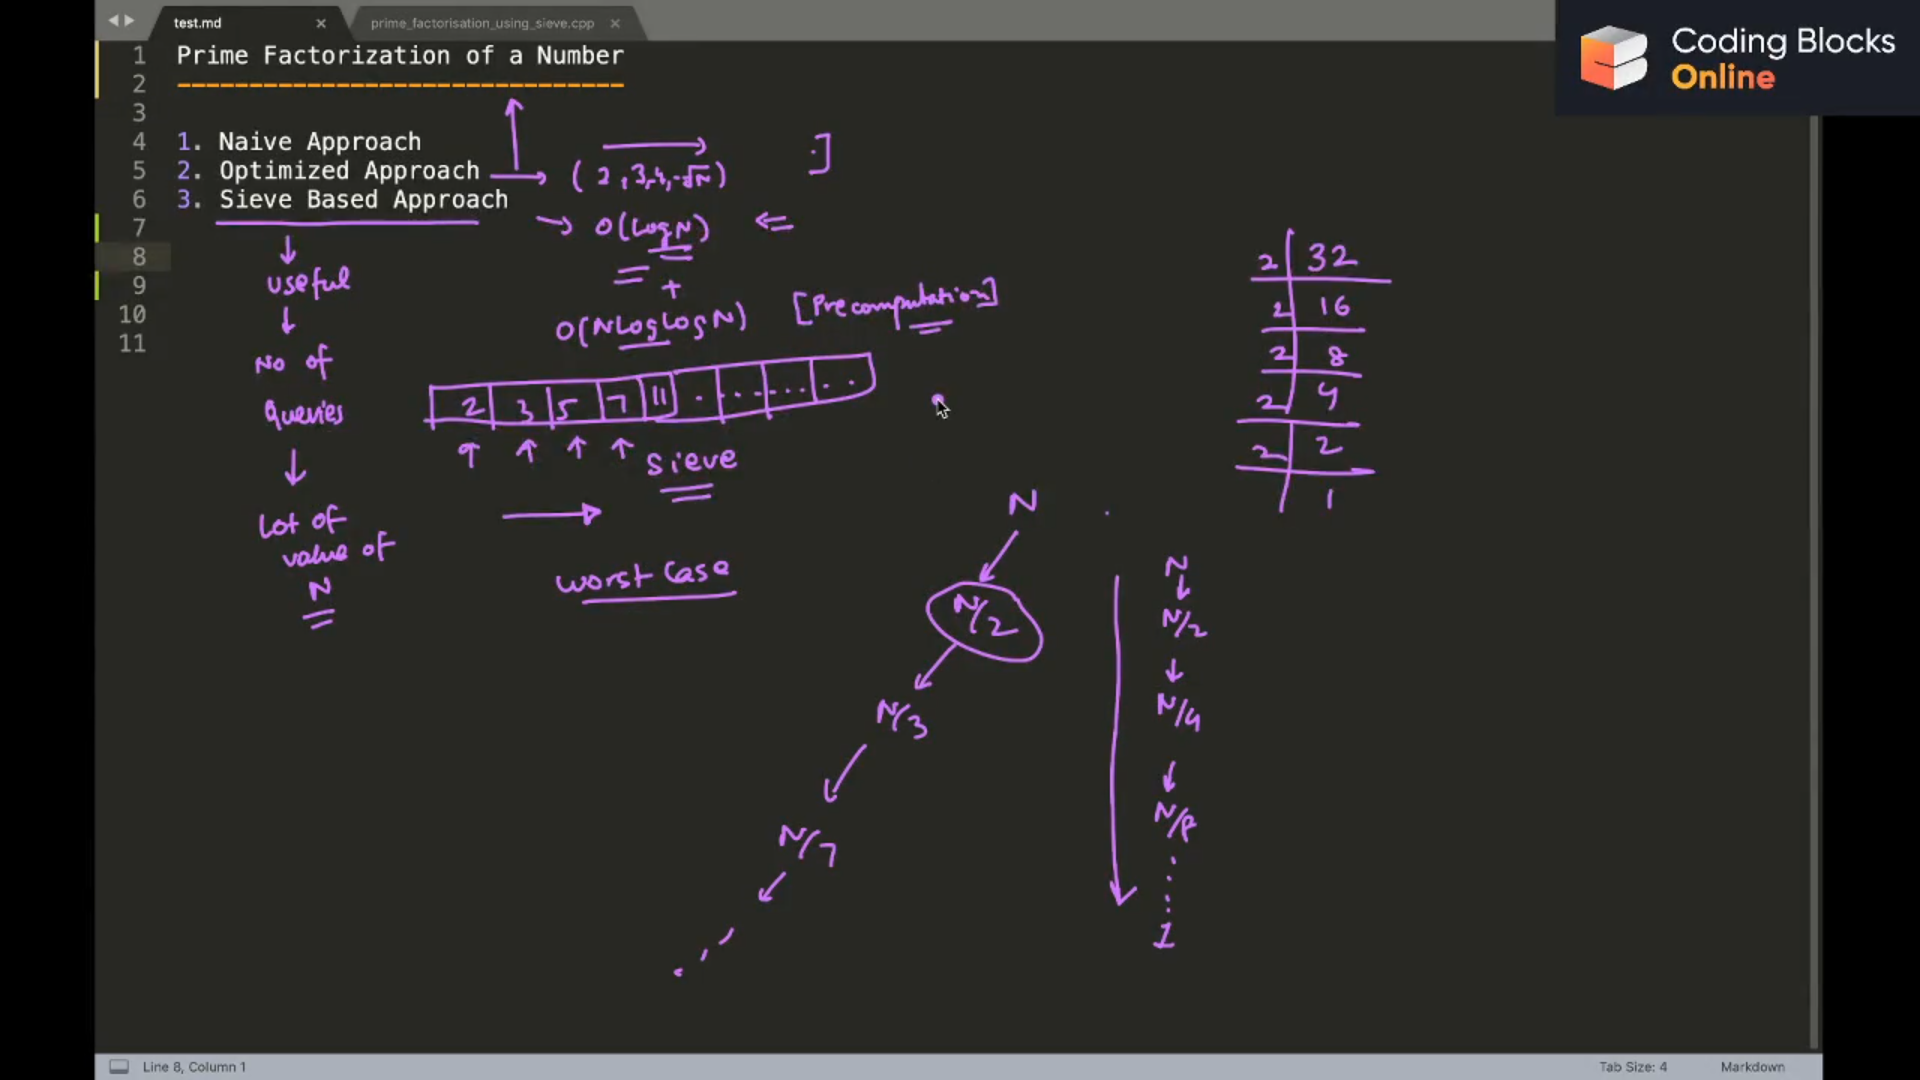 test.md
prime_factorisation_using_sieve.cpp
Coding Blocks
Online
1 Prime Factorization of a Number
2 -------------------------------
3
4 1. Naive Approach
5 2. Optimized Approach
(2,3,4,-√N)
6 3. Sieve Based Approach
7
8
9
10
11
O(LogN)
+
O(NLogLogN) [Precomputation]
useful
No of
Queries
Lot of
value of
N
2 3 5 7 11 . ... ... ..
Sieve
worst Case
N
N/2
N/3
N/7
N
N/2
N/4
N/8
1
2 32
2 16
2 8
2 4
2 2
1
Line 8, Column 1
Tab Size: 4
Markdown